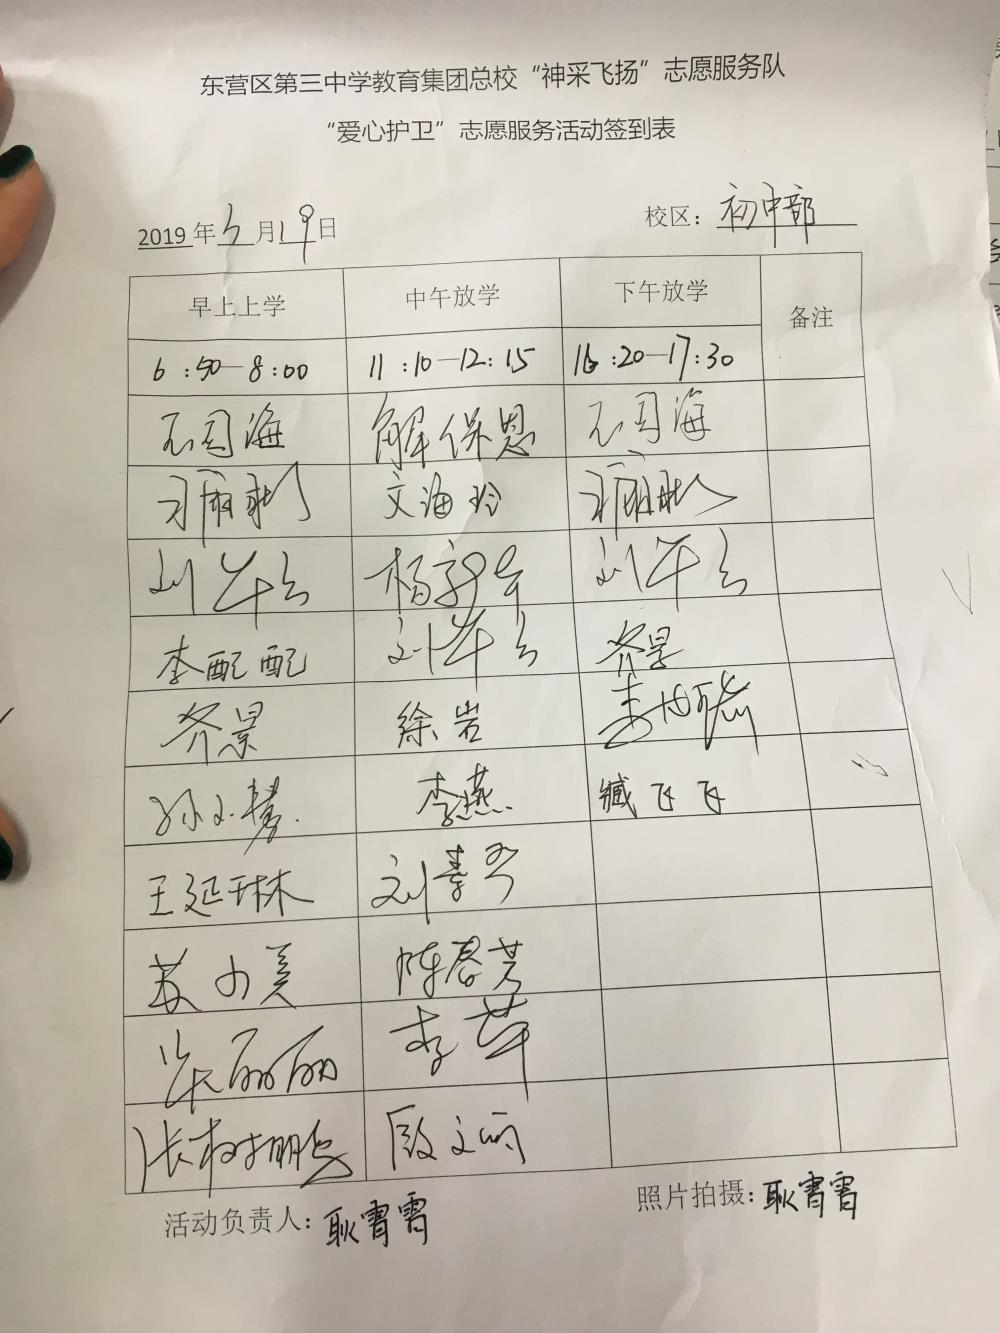 东营区第三中学教育集团总校“神采飞扬”志愿服务队
“爱心护卫”志愿服务活动签到表
2019年3月19日 校区：初中部
早上上学 中午放学 下午放学 备注
6:50—8:00 11:10—12:15 16:20—17:30
石国海 解保恩 石国海
文海玲
刘华云 刘华云
李配配 刘华云 齐景
齐景 徐岩
孙小慧 李燕 臧飞飞
王延琳 刘素琴
苏小美 陈春芳
张丽丽 李苹
张树鹏 殷文丽
活动负责人：耿霄霄 照片拍摄：耿霄霄